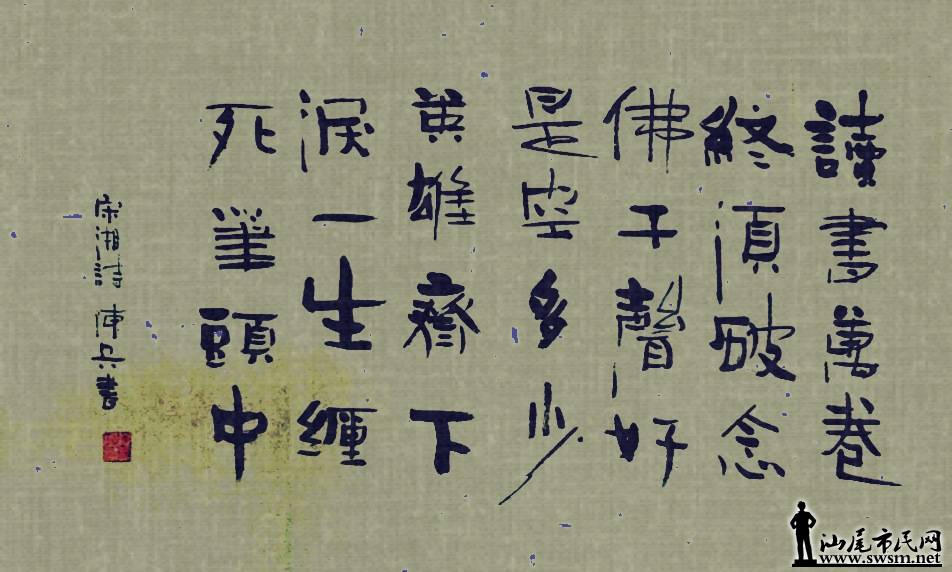 讀書萬卷
終須破念
佛千聲好
是空多少
英雄齊下
淚一生纏
死筆頭中
宋湘詩 陳兵書
汕尾市民网
www.swsm.net